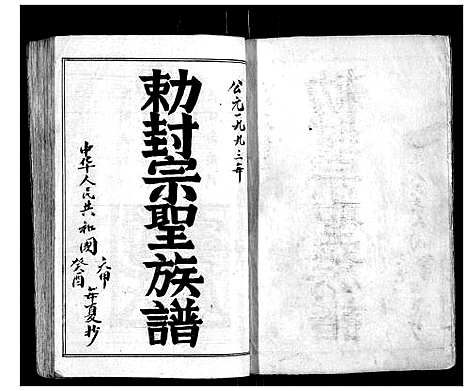 公元一九九三年
勅封宗聖族譜
中华人民共和國
六甲
癸酉
年夏抄